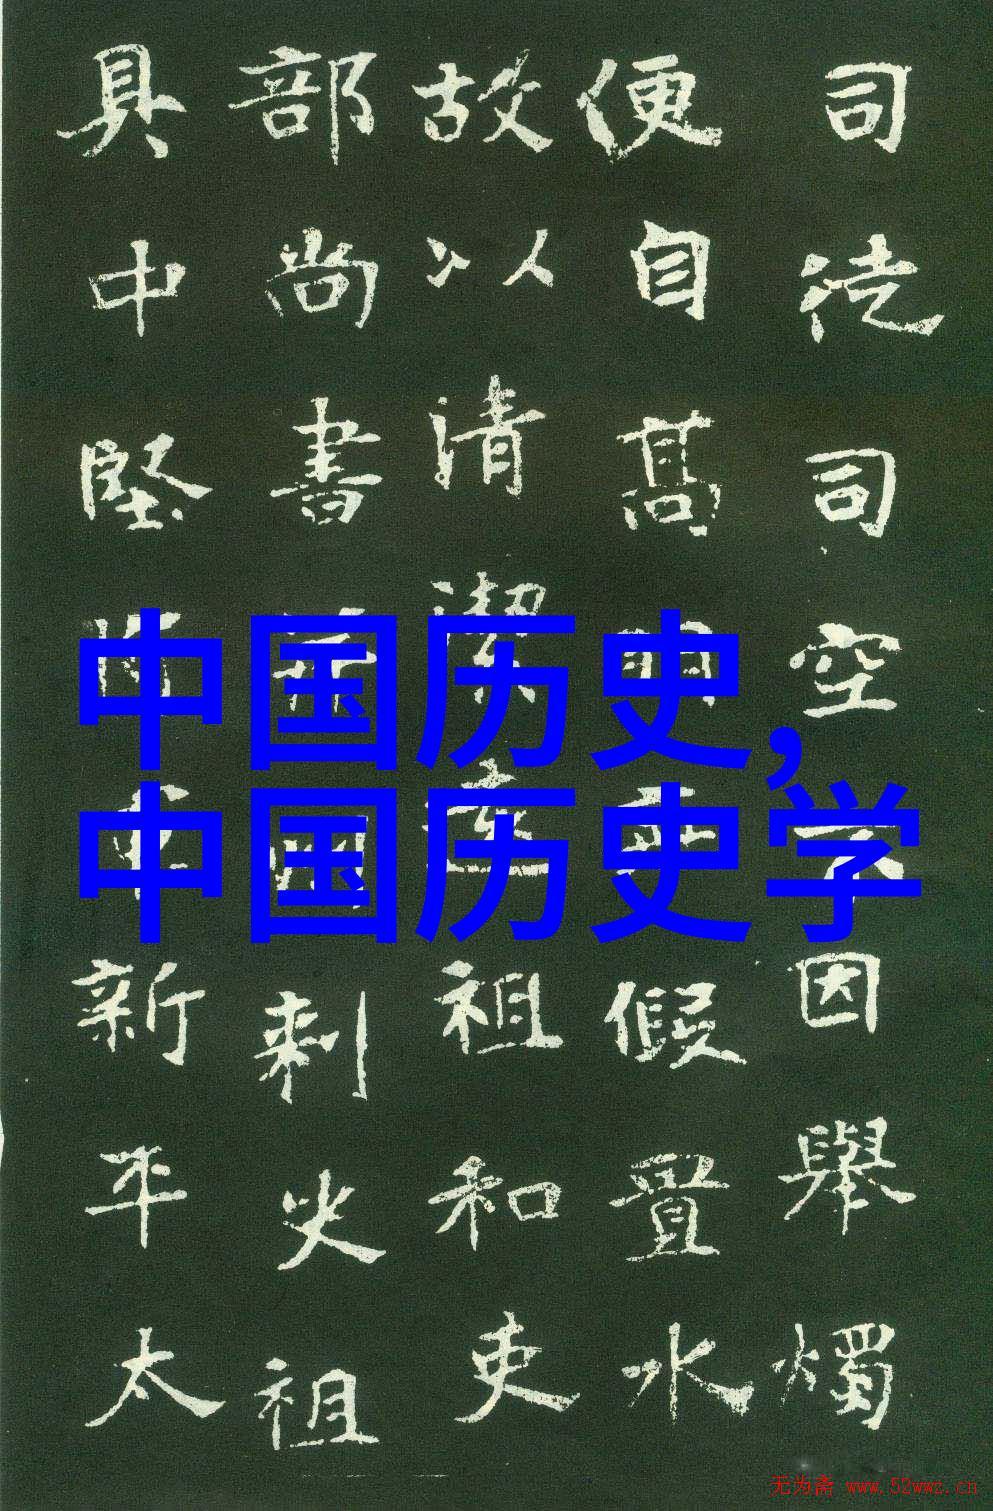 司徒司空因舉燭
便自高假置水
故以清潔祖和吏
部尚書刺史祖
具中堅新平太
中国历史,
中国历史学
无为斋 www.52wwz.cn